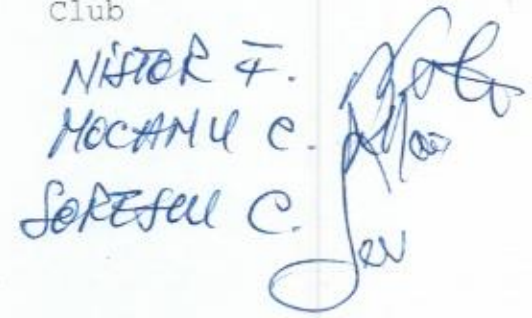 Club
NISTOR F.
MOCANU C.
SORESCU C.